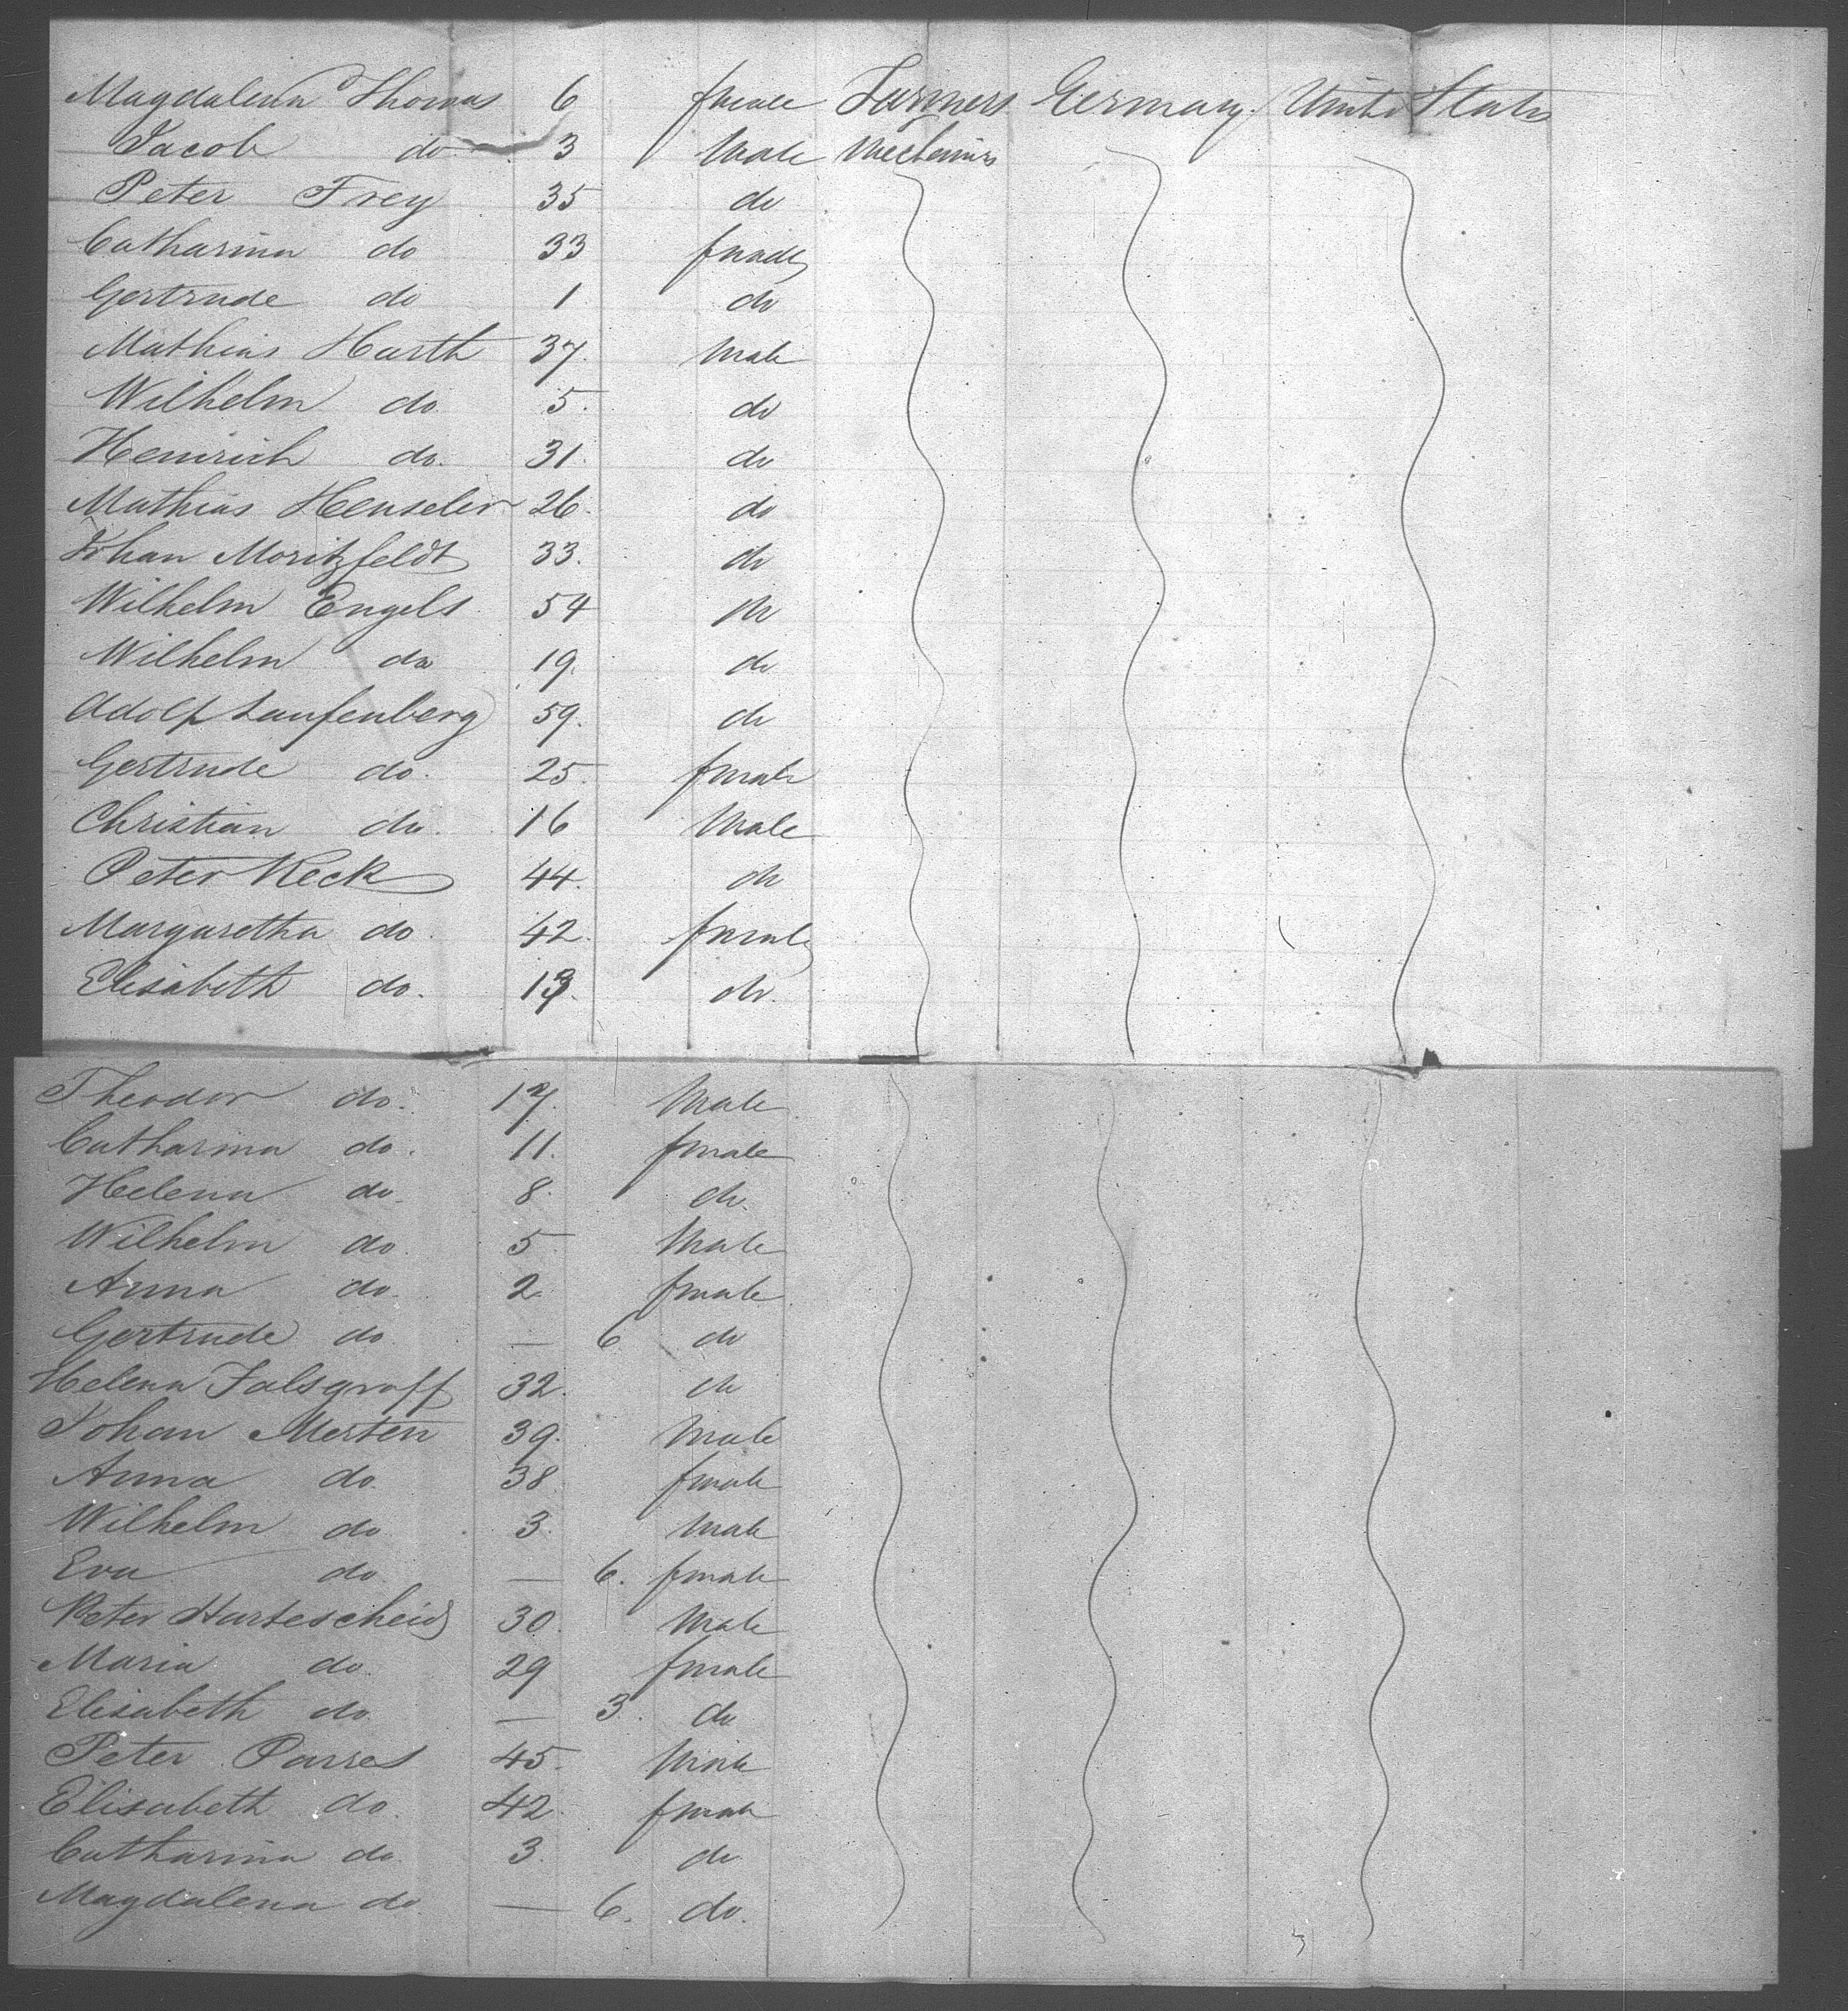 Magdalena Thomas 6 female Farmers Germany United States
Jacob do 3 Male Mechanics
Peter Frey 35 do
Catharina do 33 female
Gertrude do 1 do
Mathias Harth 37. Male
Wilhelm do 5. do
Heinrich do. 31. do
Mathias Henseler 26. do
Johan Moritzfeldt 33. do
Wilhelm Engels 54 do
Wilhelm do 19. do
Adolf Laufenberg 59. do
Gertrude do. 25. female
Christian do. 16 Male
Peter Keck 44. do
Margaretha do. 42. female
Elisabeth do. 13. do.
Theodor do. 17. Male
Catharina do. 11. female
Helena do. 8. do.
Wilhelm do. 5. Male
Anna do. 2. female
Gertrude do. — 6 do
Helena Falsgraff 32. do
Johan Merten 39. Male
Anna do. 38. female
Wilhelm do 3. Male
Eva do — 6. female
Peter Hartescheid 30. Male
Maria do. 29 female
Elisabeth do. — 3. do
Peter Parres 45. Male
Elisabeth do. 42. female
Catharina do. 3. do
Magdalena do. — 6. do.